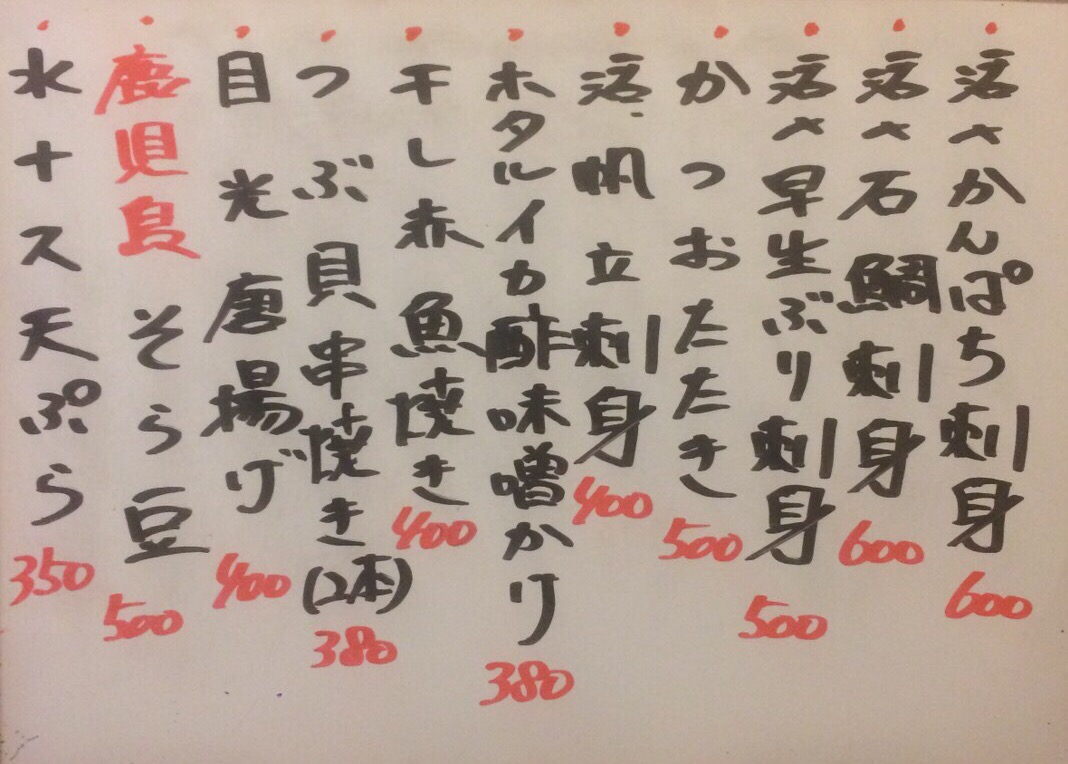 活〆かんぱち刺身 600
活〆石鯛刺身 600
活〆早生ぶり刺身 500
かつおたたき 500
活帆立刺身 400
ホタルイカ酢味噌かり 380
干し赤魚焼き 400
つぶ貝串焼き(2本) 380
目光唐揚げ 400
鹿児島そら豆 500
水ナス天ぷら 350